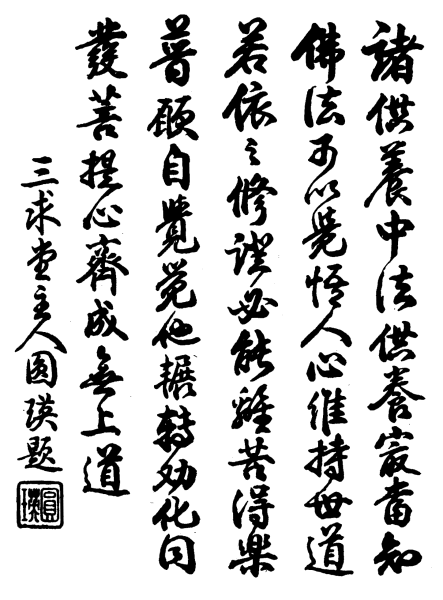 諸供養中法供養㝡當知
佛法可以覺悟人心維持世道
若依之修證必能離苦得樂
普願自覺覺他輾轉劝化同
發菩提心齊成無上道
三求堂主人圓瑛題
圓瑛